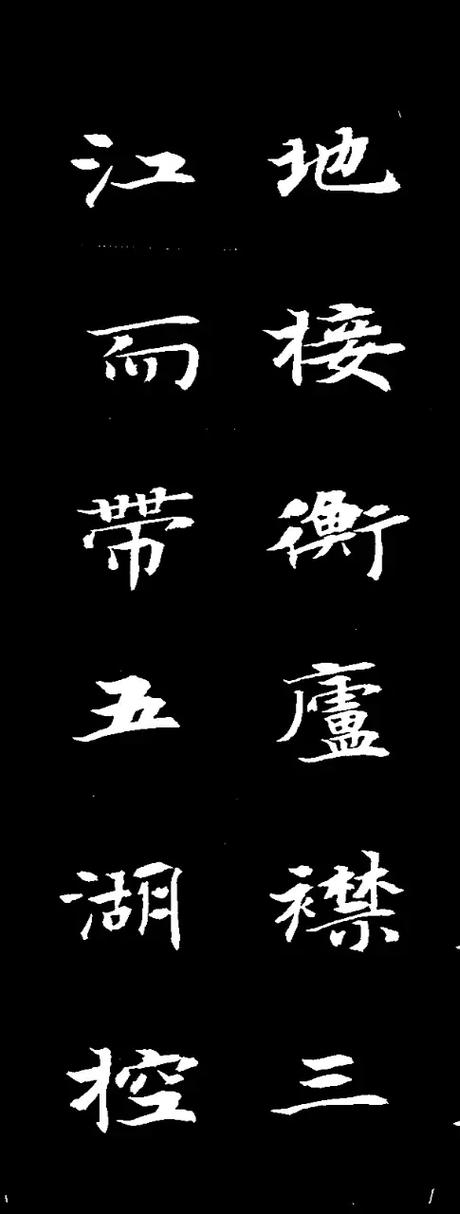 地接衡廬襟三
江而帶五湖控